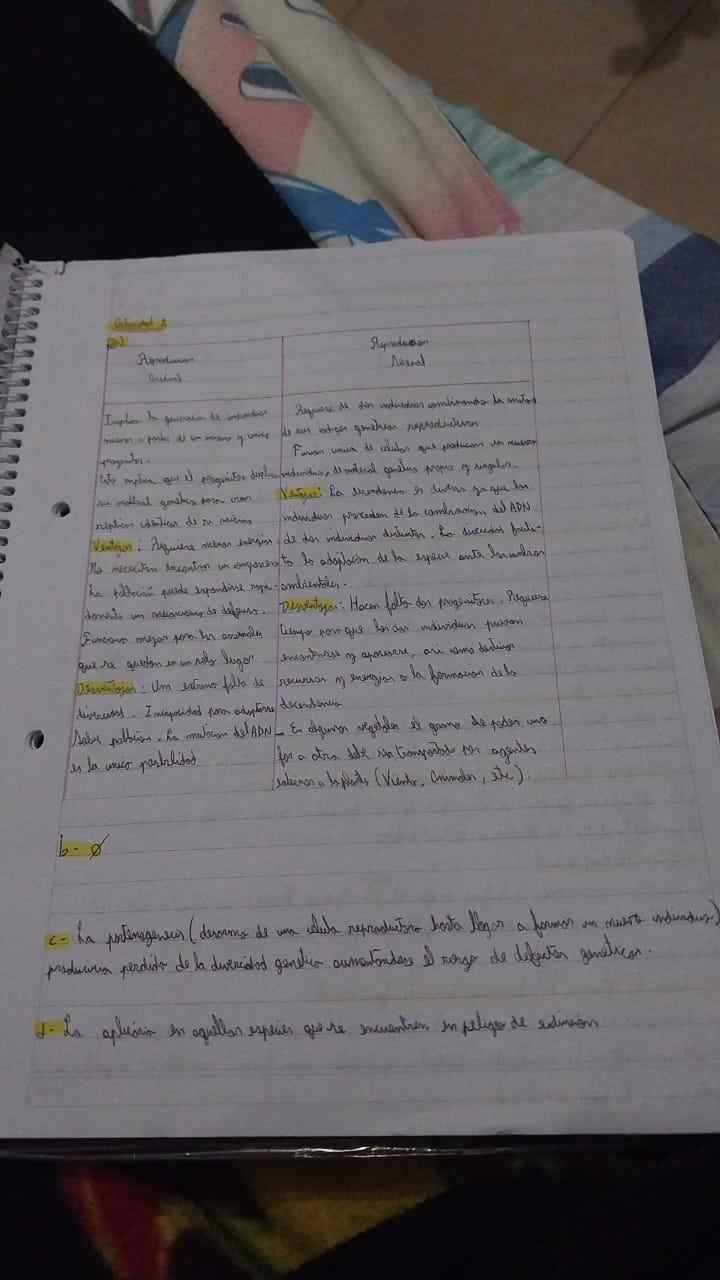 Actividad 2
a)
Reproduccion
Asexual
Implica la generacion de individuos
nuevos a partir de un mismo y unico
progenitor.
Esto implica que el progenitor duplica
su material genetico para crear
replicas identicas de si mismo
Ventajas: Requiere menos energia
No necesitan encontrar un compañero
La poblacion puede expandirse rapi-
damente un mecanismo de defensa.
Funciona mejor para los animales
que se quedan en un solo lugar
Desventajas: Un extremo falta de
diversidad. Incapacidad para adaptarse
poblacion. La mutacion del ADN
es la unica posibilidad
Reproduccion
Sexual
Requiere de dos individuos combinando la mitad
de sus codigos geneticos reproductivos
Furion unica de celulas que producen un nuevo
individuo, de material genetico propio y singular.
Ventajas: La descendencia es diversa ya que los
individuos proceden de la combinacion del ADN
de dos individuos distintos. La diversidad facili-
ta la adaptacion de la especie ante los cambios
ambientales.
Desventajas: Hacen falta dos progenitores. Requiere
tiempo para que los dos individuos puedan
encontrarse y aparearse, asi como destinar
recursos y energias a la formacion de la
descendencia
- En algunos vegetales el grano de polen una
flor a otra debe ser transportado por agentes
externos a la planta (Viento, Animales, etc).
b- ∅
c- La partenogenesis (desarrollo de una celula reproductora hasta llegar a formar un nuevo individuo)
produciria perdida de la diversidad genetica aumentandose el riesgo de defectos geneticos.
d- La aplicaria en aquellas especies que se encuentren en peligro de extincion